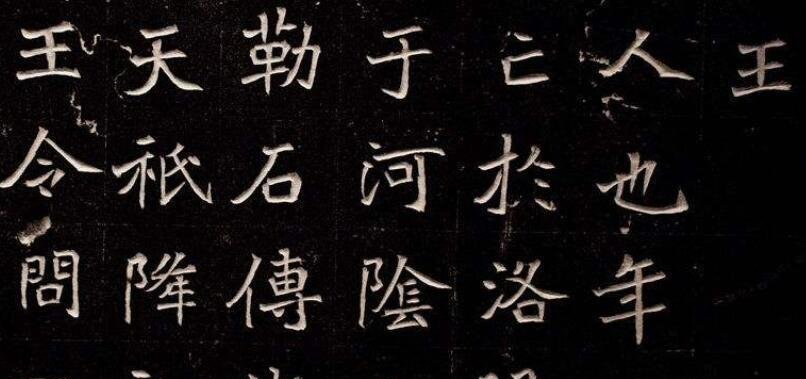 王
人也年
亡於洛
于河陰
勒石傳
天祇降
王令問